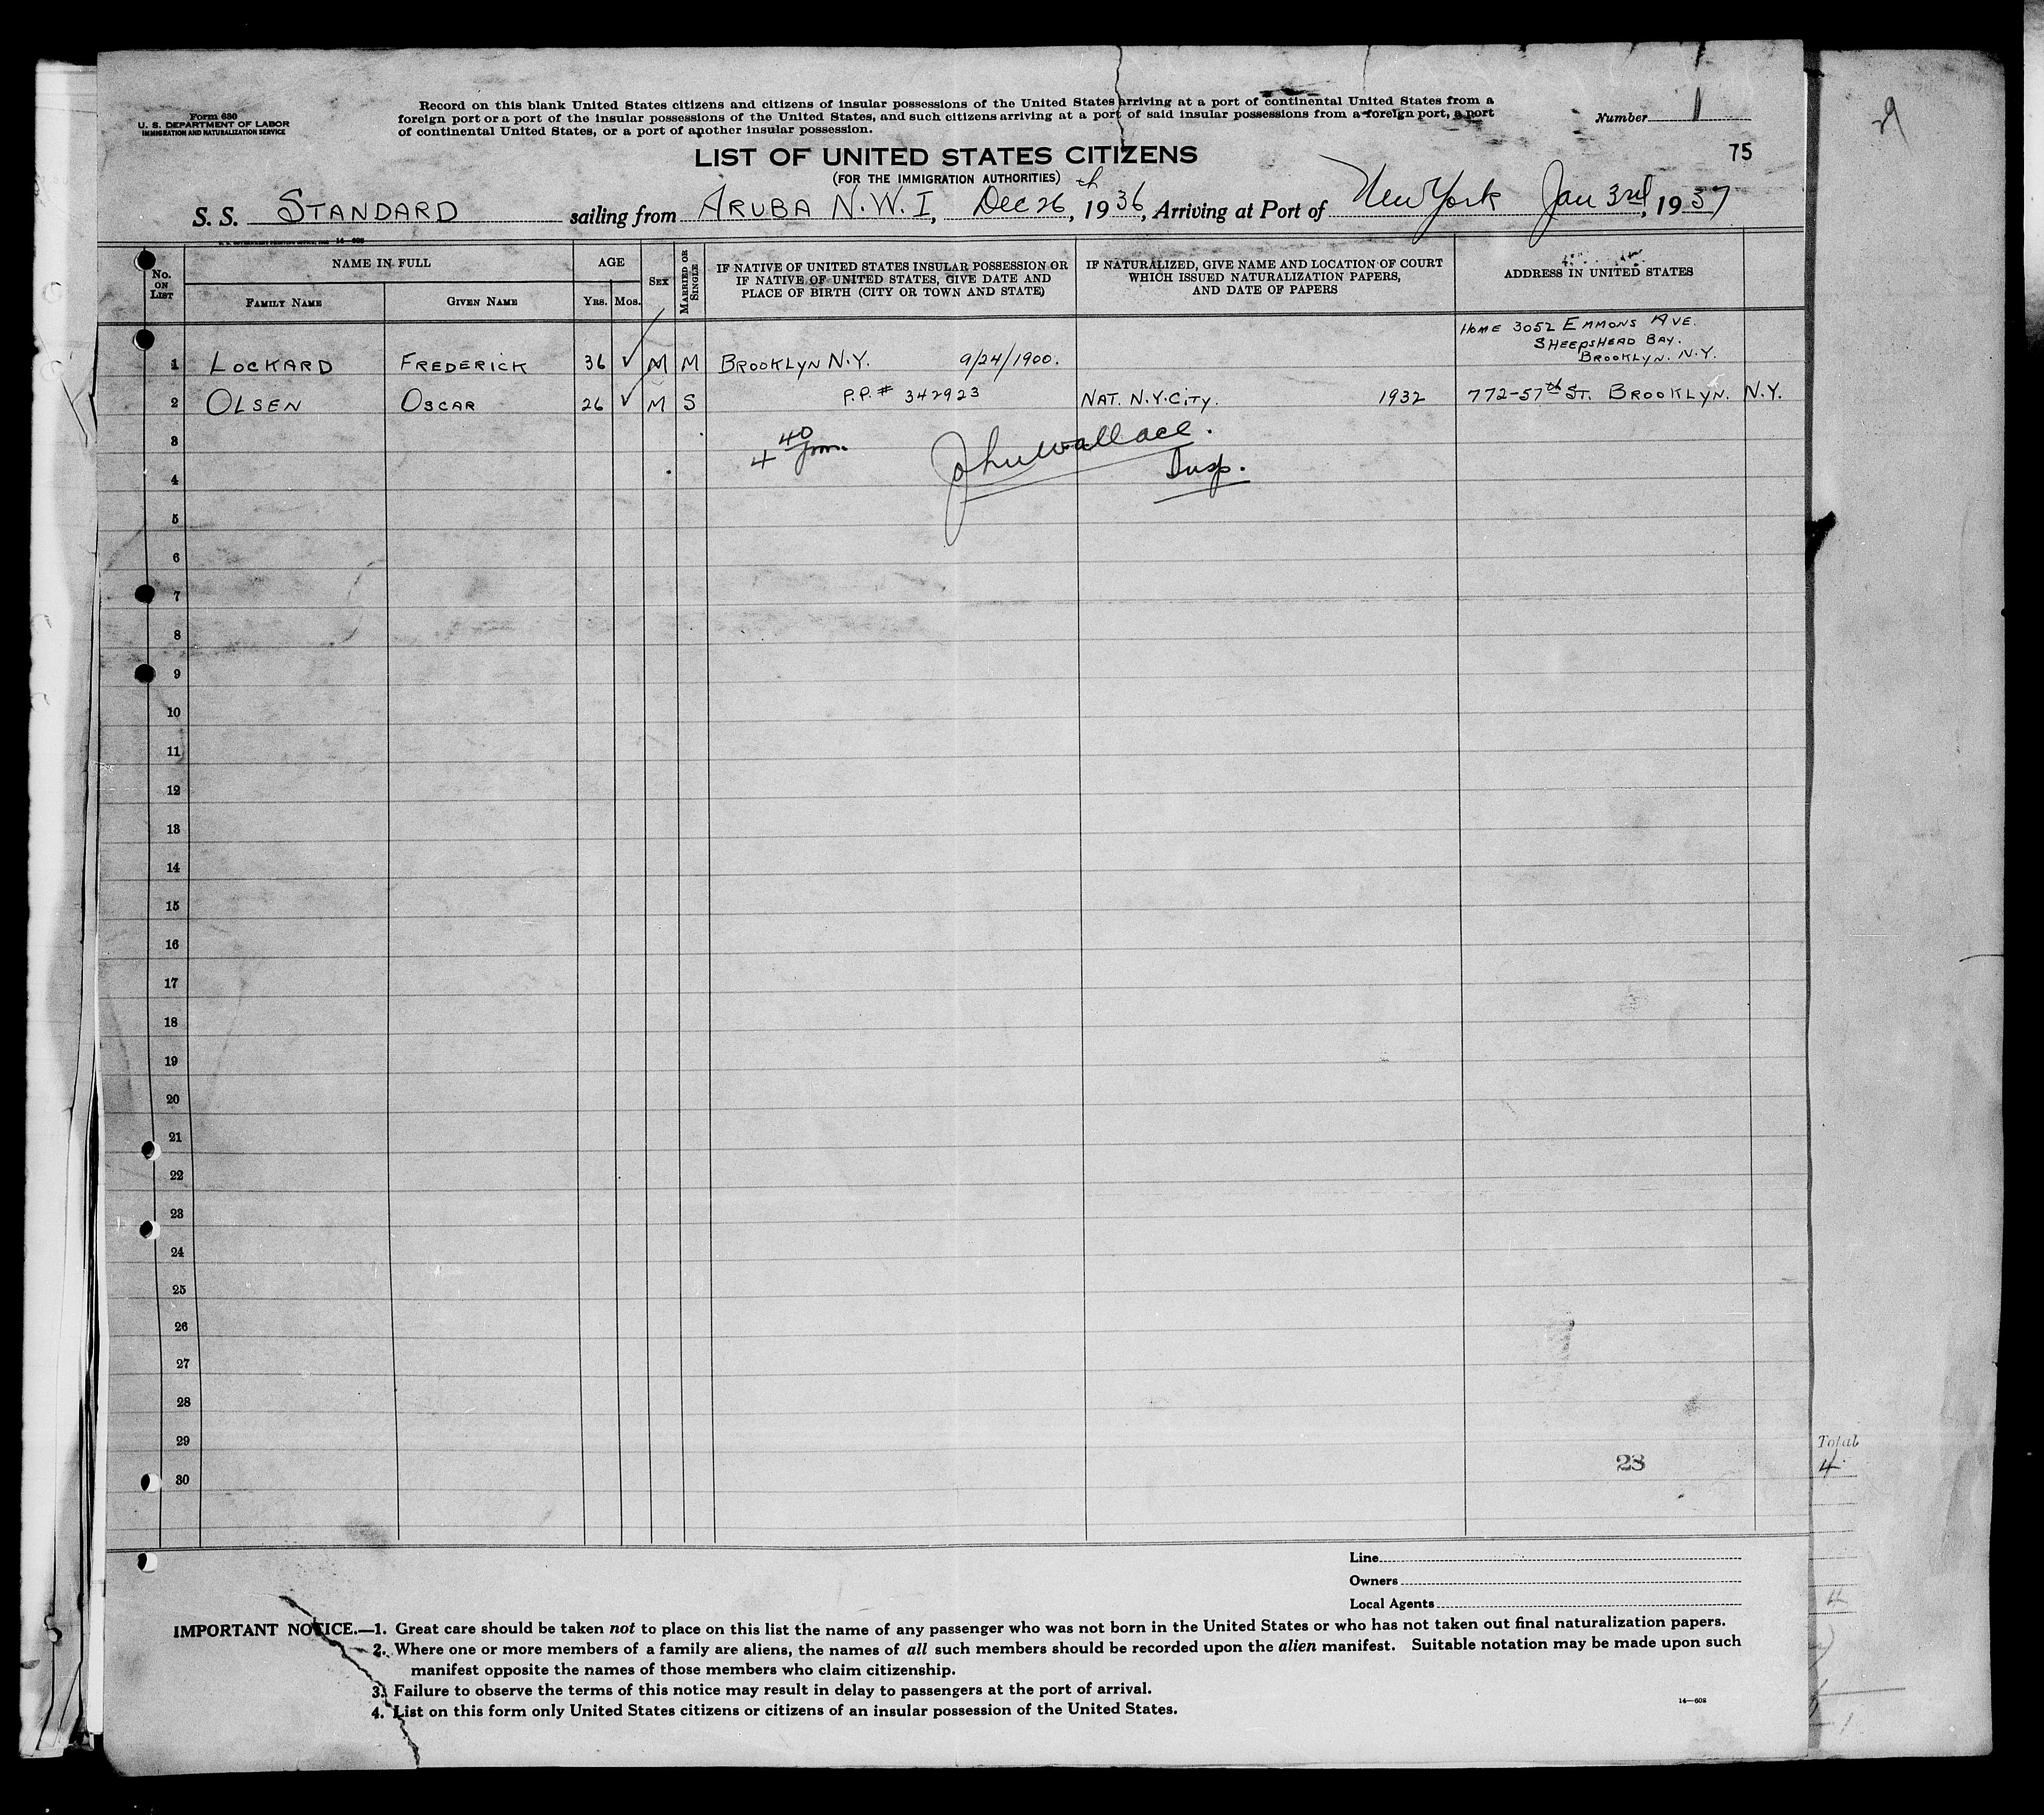 Form 630
U. S. DEPARTMENT OF LABOR
IMMIGRATION AND NATURALIZATION SERVICE
Record on this blank United States citizens and citizens of insular possessions of the United States arriving at a port of continental United States from a
foreign port or a port of the insular possessions of the United States, and such citizens arriving at a port of said insular possessions from a foreign port, a port
of continental United States, or a port of another insular possession.
Number 1
LIST OF UNITED STATES CITIZENS
75
(FOR THE IMMIGRATION AUTHORITIES)
S. S. STANDARD sailing from ARUBA N.W.I, Dec 26th, 1936, Arriving at Port of New York Jan 3rd, 1937
14—608
No. ON LIST
NAME IN FULL
FAMILY NAME
GIVEN NAME
AGE
YRS. MOS.
SEX
MARRIED OR SINGLE
IF NATIVE OF UNITED STATES INSULAR POSSESSION OR
IF NATIVE OF UNITED STATES, GIVE DATE AND
PLACE OF BIRTH (CITY OR TOWN AND STATE)
IF NATURALIZED, GIVE NAME AND LOCATION OF COURT
WHICH ISSUED NATURALIZATION PAPERS,
AND DATE OF PAPERS
ADDRESS IN UNITED STATES
HOME 3052 EMMONS AVE.
SHEEPSHEAD BAY.
BROOKLYN. N.Y.
1 LOCKARD FREDERICK 36 ✓ M M BROOKLYN N.Y. 9/24/1900.
2 OLSEN OSCAR 26 ✓ M S P.P. # 342923 NAT. N.Y. CITY. 1932 772-57th ST. BROOKLYN. N.Y.
3 4 40 pm. John Wallace.
4 Insp.
5
6
7
8
9
10
11
12
13
14
15
16
17
18
19
20
21
22
23
24
25
26
27
28
29
28
30
Total
4
Line
Owners
Local Agents
4
IMPORTANT NOTICE.—1. Great care should be taken not to place on this list the name of any passenger who was not born in the United States or who has not taken out final naturalization papers.
2. Where one or more members of a family are aliens, the names of all such members should be recorded upon the alien manifest. Suitable notation may be made upon such
manifest opposite the names of those members who claim citizenship.
3. Failure to observe the terms of this notice may result in delay to passengers at the port of arrival.
4. List on this form only United States citizens or citizens of an insular possession of the United States.
14—608